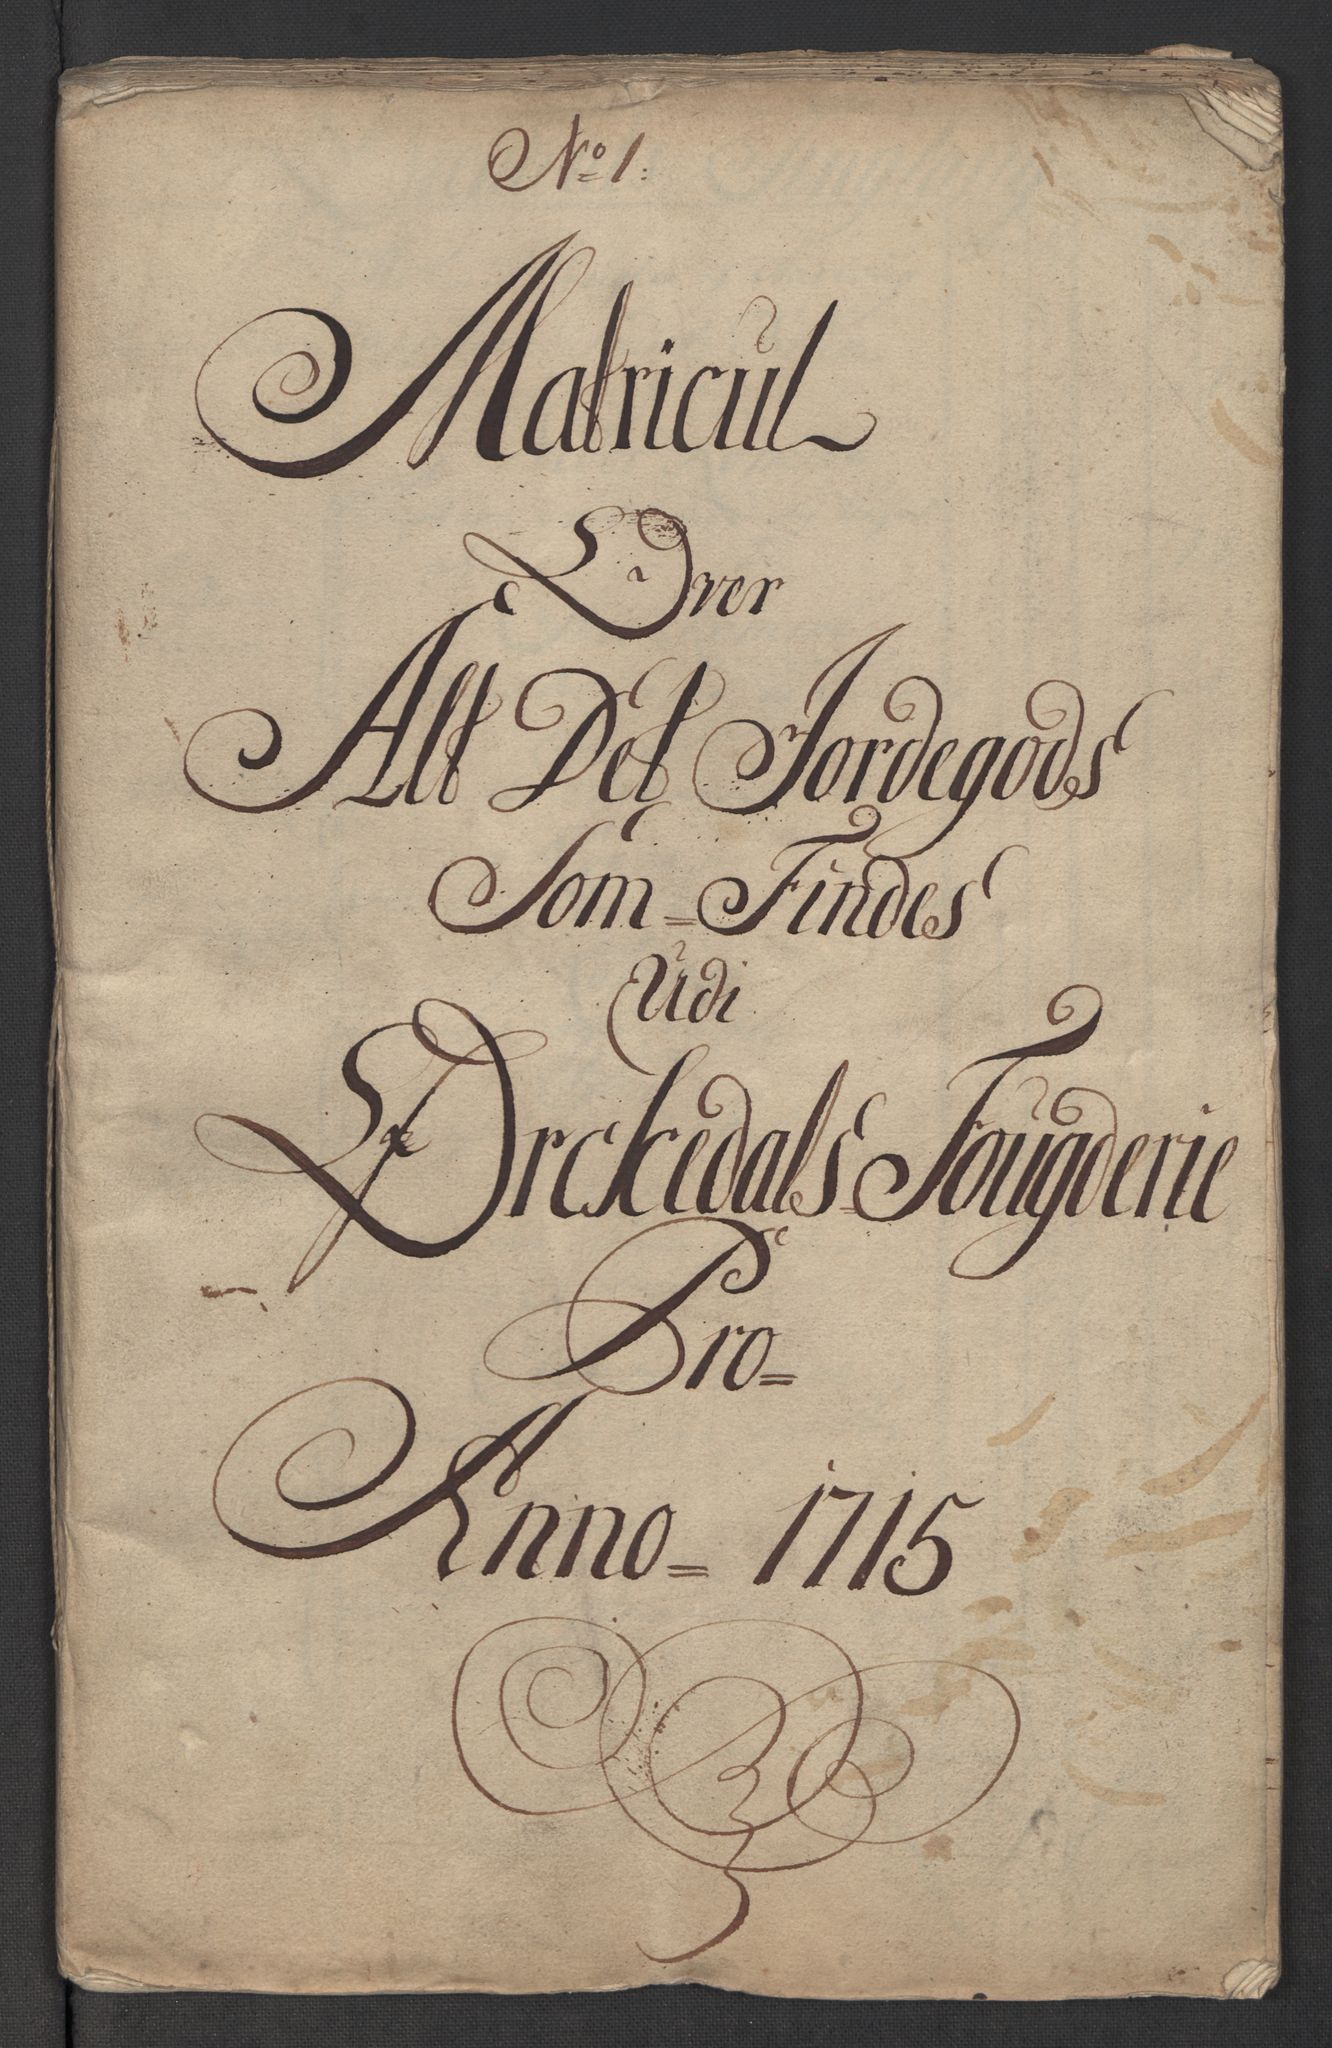 No 1:
Matricul
Over
Alt Det Jordegods
Som= Findes
Udi
Orckedals Fougderie
Pro=
Anno= 1715